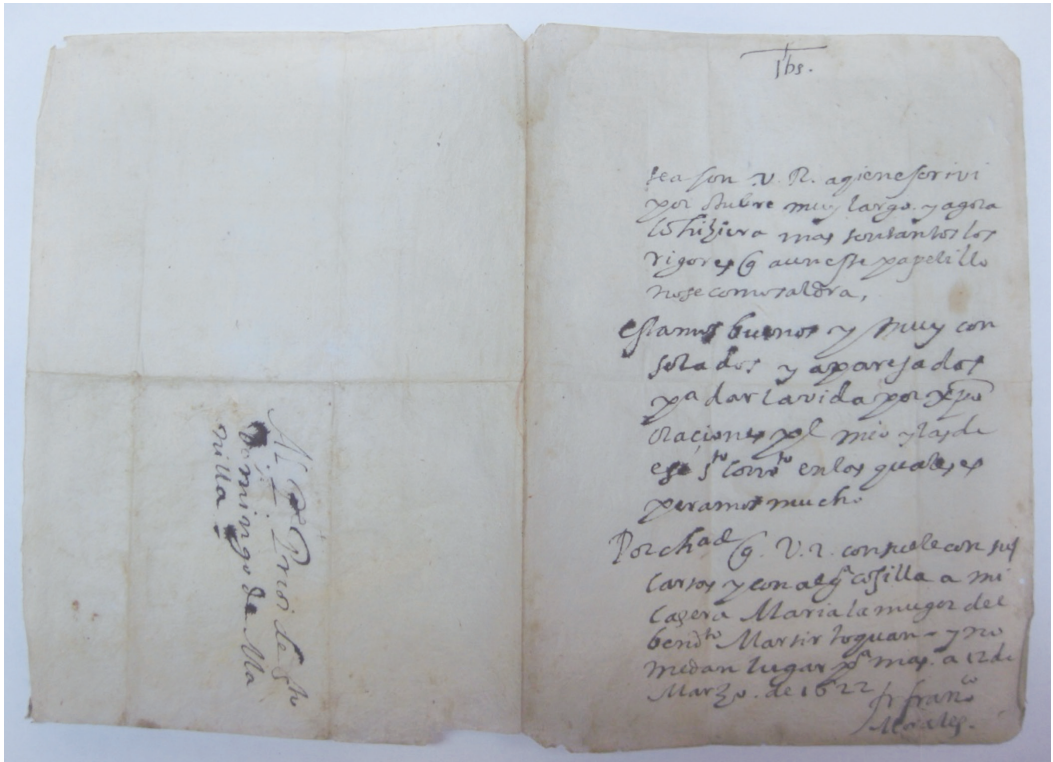 Al Pe Prior de Sto
Domingo de Ma
nilla
Ihs.
sea con V. R. a qien escrivi
por otubre muy largo. y agora
lo hiziera mas son tantos los
rigores q aun este papelillo
no se como saldra,
estamos buenos y muy con
solados y aparejados
pa dar la vida por xpo
oraciones pe mio y las de
ese sto convto en los quales es
peramos mucho
Por chad q. V. R. consuele con sus
cartas y con algª cosilla a mi
casera Maria la muger del
bendto Martir toquan - y no
me dan lugar pª mas. a 12 de
Março. de 1622
fr franco
Morales.